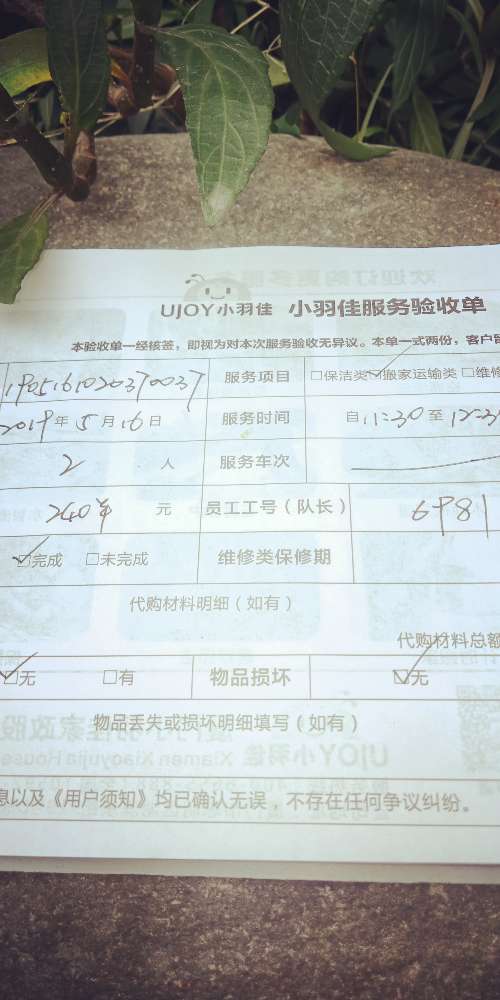 UJOY小羽佳 小羽佳服务验收单
本验收单一经核签，即视为对本次服务验收无异议。本单一式两份，客户留
1905161020370037 服务项目 □保洁类 ☑搬家运输类 □维修
2019年5月16日 服务时间 自11:30至12:3
2人 服务车次
240元 员工工号（队长） 6981
☑完成 □未完成 维修类保修期
代购材料明细（如有）
代购材料总额
☑无 □有 物品损坏 ☑无
物品丢失或损坏明细填写（如有）
息以及《用户须知》均已确认无误，不存在任何争议纠纷。